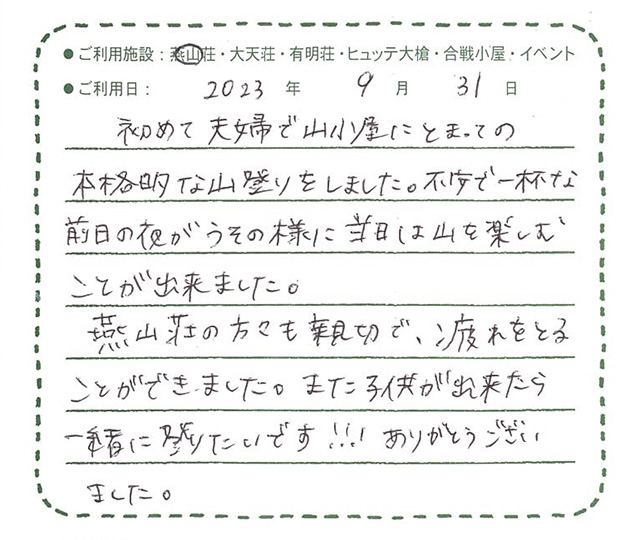 ● ご利用施設：燕山荘・大天荘・有明荘・ヒュッテ大槍・合戦小屋・イベント
● ご利用日： 2023 年 9 月 31 日
初めて夫婦で山小屋にとまっての
本格的な山登りをしました。不安で一杯な
前日の夜がうその様に当日は山を楽しむ
ことが出来ました。
燕山荘の方々も親切で、疲れをとる
ことができました。また子供が出来たら
一緒に登りたいです!!! ありがとうござい
ました。